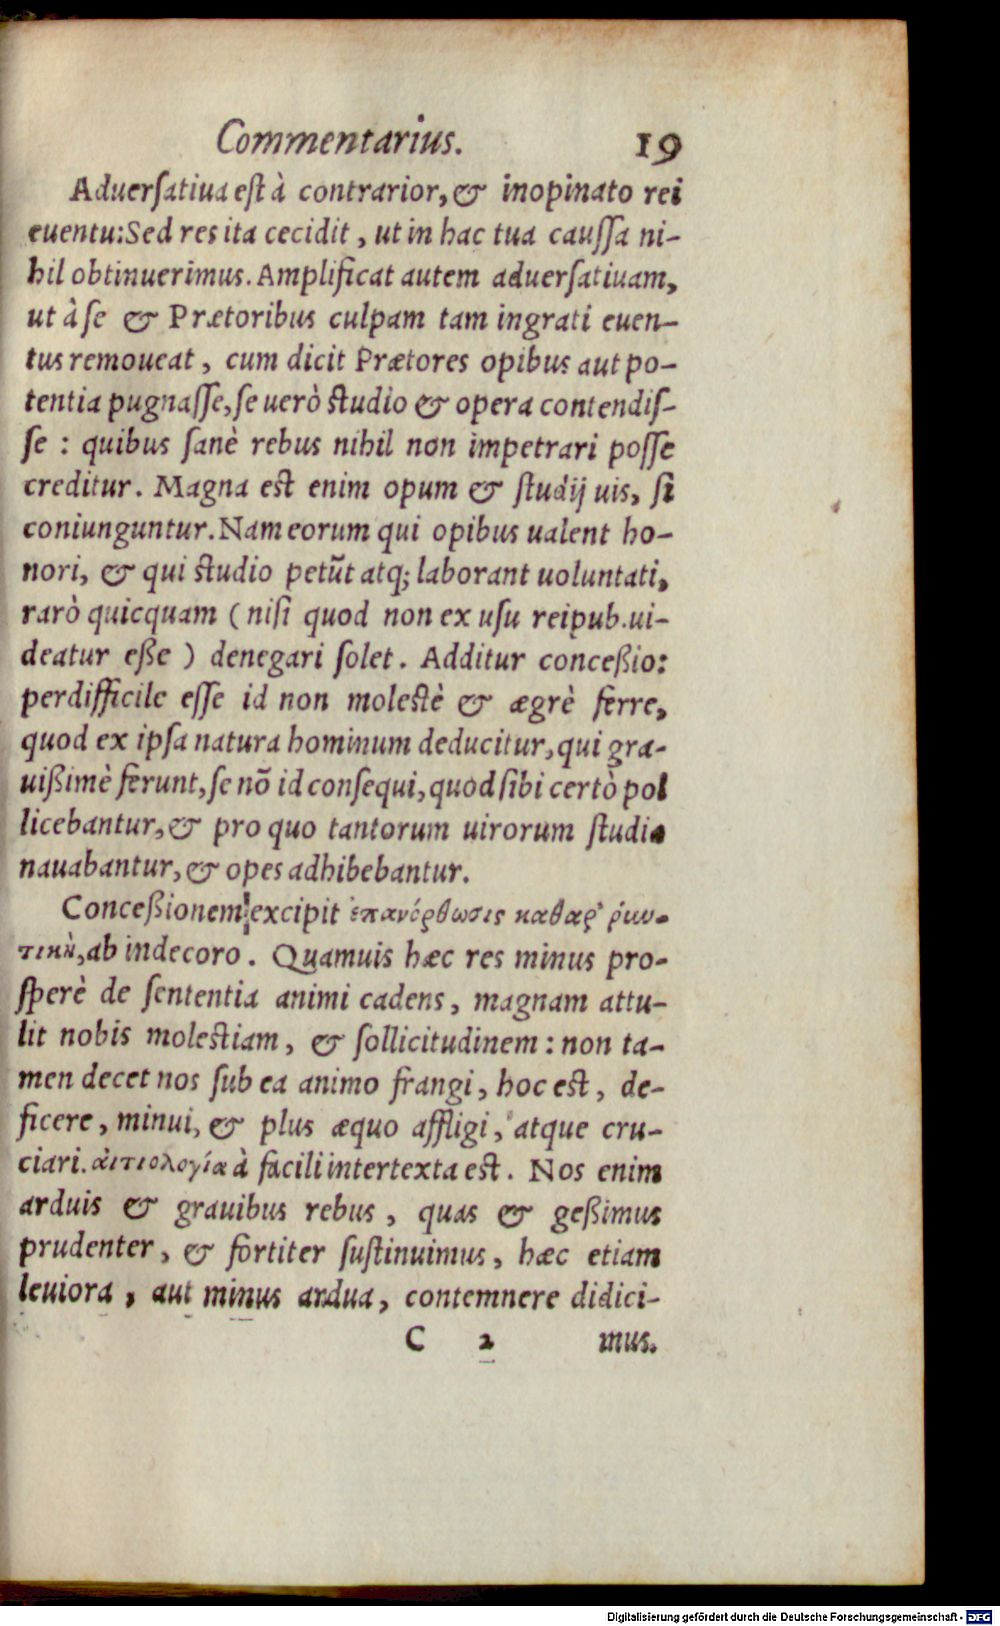 Commentarius. 19
Aduerſatiua eſt à contrarior, & inopinato rei
euentu: Sed res ita cecidit, ut in hac tua cauſſa ni-
hil obtinuerimus. Amplificat autem aduerſatiuam,
ut à ſe & Prætoribus culpam tam ingrati euen-
tus remoueat, cum dicit Prætores opibus aut po-
tentia pugnaſſe, ſe uerò ſtudio & opera contendiſ-
ſe : quibus ſanè rebus nihil non impetrari poſſe
creditur. Magna eſt enim opum & ſtudij uis, ſi
coniunguntur. Nam eorum qui opibus ualent ho-
nori, & qui ſtudio petũt atq; laborant uoluntati,
rarò quicquam ( niſi quod non ex uſu reipub. ui-
deatur eße ) denegari ſolet. Additur conceßio:
perdifficile eſſe id non moleſtè & ægrè ferre,
quod ex ipſa natura hominum deducitur, qui gra-
uißimè ferunt, ſe nõ id conſequi, quod ſibi certò pol
licebantur, & pro quo tantorum uirorum ſtudia
nauabantur, & opes adhibebantur.
Conceßionem excipit ἐπανόρθωσις
ab indecoro. Quamuis hæc res minus pro-
ſperè de ſententia animi cadens, magnam attu-
lit nobis moleſtiam, & ſollicitudinem : non ta-
men decet nos ſub ea animo frangi, hoc eſt, de-
ficere, minui, & plus æquo affligi, atque cru-
ciari. αἰτιολογία à facili intertexta eſt. Nos enim
arduis & grauibus rebus, quas & geßimus
prudenter, & fortiter ſuſtinuimus, hæc etiam
leuiora, aut minus ardua, contemnere didici-
C 2 mus.
Digitalisierung gefördert durch die Deutsche Forschungsgemeinschaft - DFG